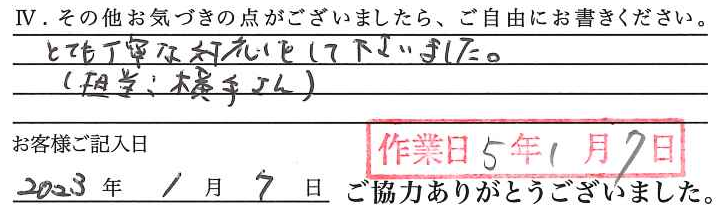 Ⅳ．その他お気づきの点がございましたら、ご自由にお書きください。
とても丁寧な対応をして下さいました。
(担当：横手さん)
お客様ご記入日
作業日 5年1月7日
2023年 1月 7日
ご協力ありがとうございました。